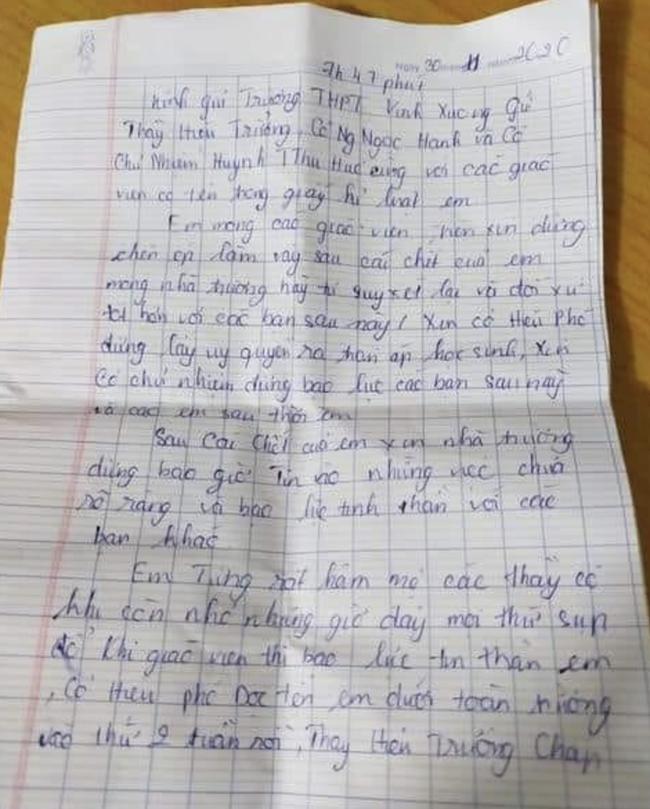 7h 47 phút ngày 30 tháng 11 năm 2020
Kính gửi Trường THPT Vĩnh Xương gửi
Thầy Hiệu Trưởng, Cô Ng Ngọc Hạnh và Cô
Chủ Nhiệm Huỳnh T Thu Huệ cùng với các giáo
viên có tên trong giấy kỉ luật em
Em mong các giáo viên, nên xin dừng
chèn ép lắm vậy sau cái chết của em
mong nhà trường hãy suy xét lại và đối xử
tốt hơn với các bạn sau này! Xin cô Hiệu Phó
đừng lấy uy quyền ra đàn áp học sinh, xin
cô chủ nhiệm đừng bạo lực các bạn sau này
và các em sau thời em
Sau Cái Chết của em xin nhà trường
đừng bao giờ Tin vào những việc chưa
rõ ràng và bạo lực tinh thần với các
bạn khác
Em Từng rất hâm mộ các thầy cô
khi còn nhỏ nhưng giờ đây mọi thứ sụp
đổ Khi giáo viên thì bạo lực tin thần em
, Cô Hiệu phó Đọc tên em dưới toàn trường
vào thứ 2 tuần rồi, Thầy Hiệu Trưởng Chấp